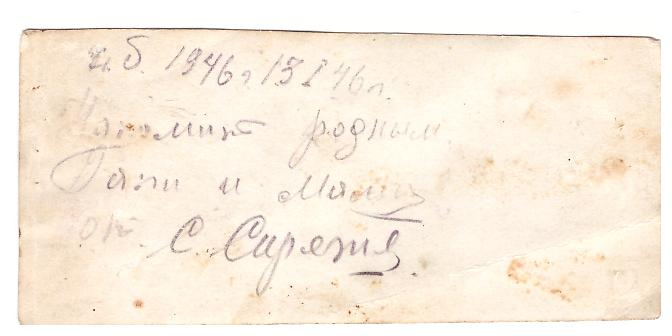 г. Б. 1946 г 13 I 46 г.
На помять родным
Папи и Мами
от С. Сирежа.